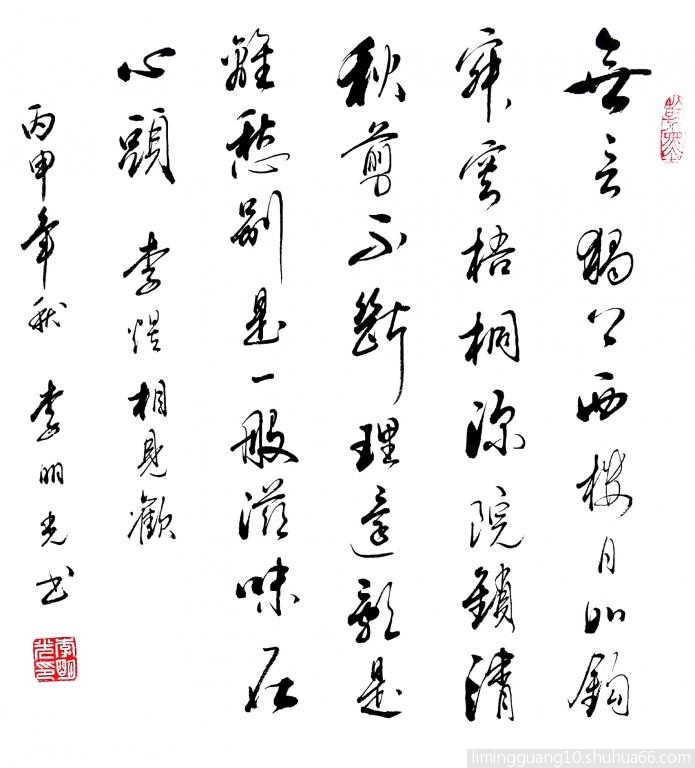 無言獨上西樓月如鈎
寂寞梧桐深院鎖清
秋剪不斷理還亂是
離愁別是一般滋味在
心頭 李煜相見歡
丙申年秋 李明光书
李明光印
limingguang10.shuhua66.com